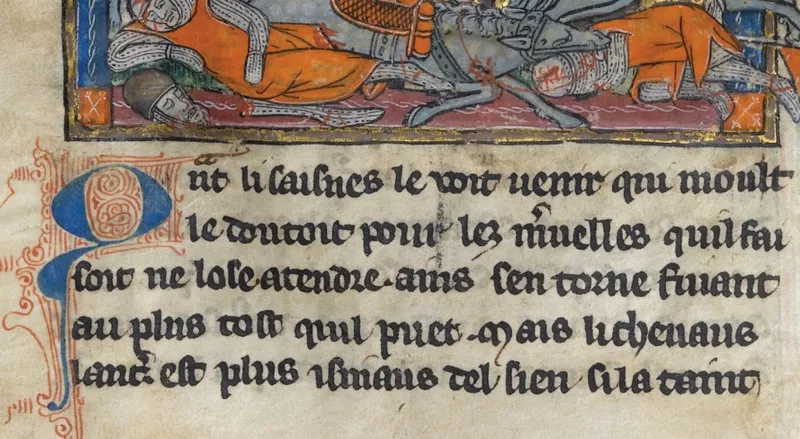 Qant li saisnes le voit uenir qui moult
le doutoit pour lez m̾uelles quil fai
soit ne lose atendre. ains sen torne fuiant
au plus tost quil puet. Mais li cheuaus
lanc̾. est plus isniaus del sien si la taint